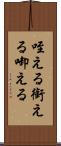 咥える銜え
る啣える